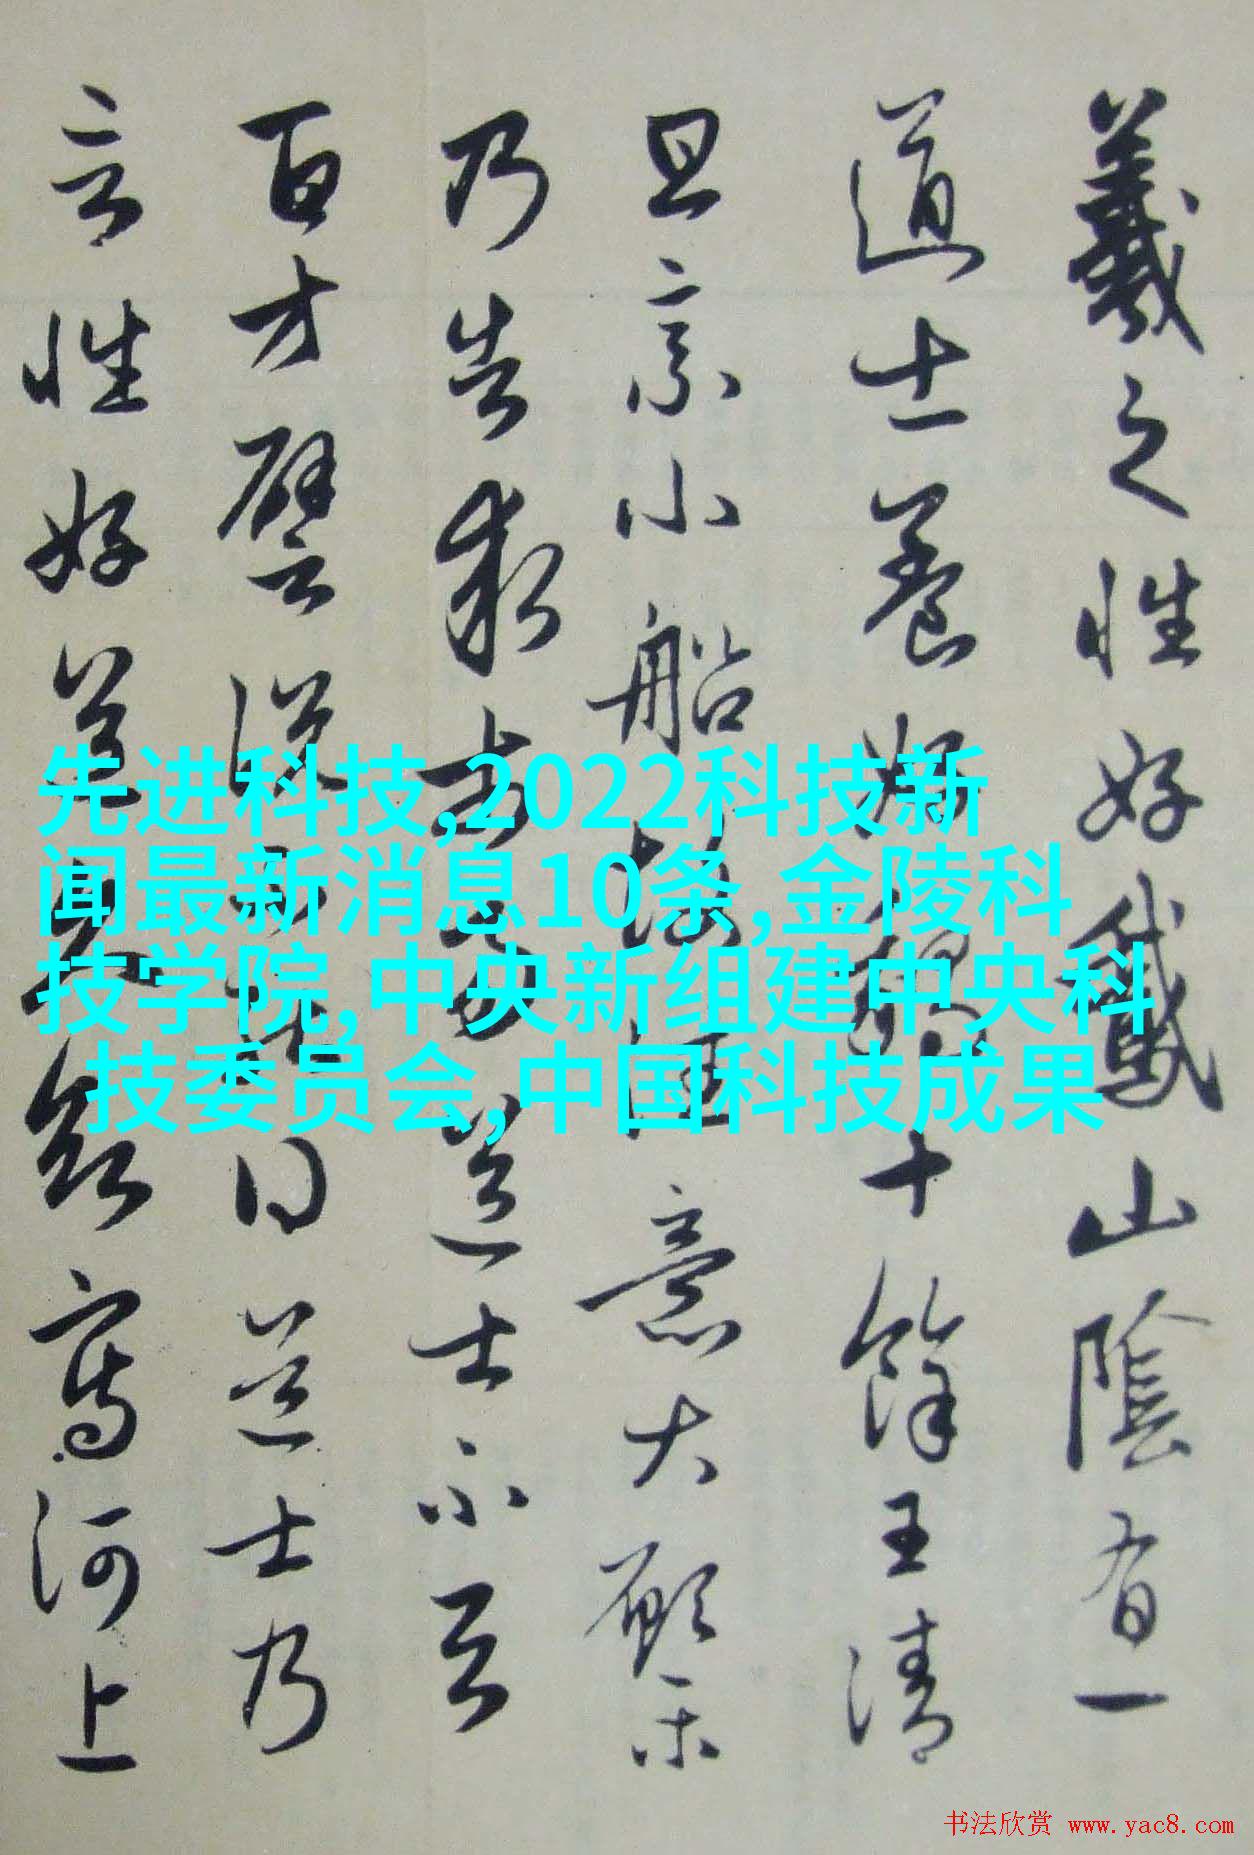 羲之性好鵞山陰有一
道士養好鵝十餘王清
旦乘小船故往意大願樂
乃告求市易道士不與
百方譬說不能得道士乃
言性好道久欲寫河上
先进科技,2022科技新
闻最新消息10条,金陵科
技学院,中央新组建中央科
技委员会,中国科技成果
书法欣赏 www.yac8.com